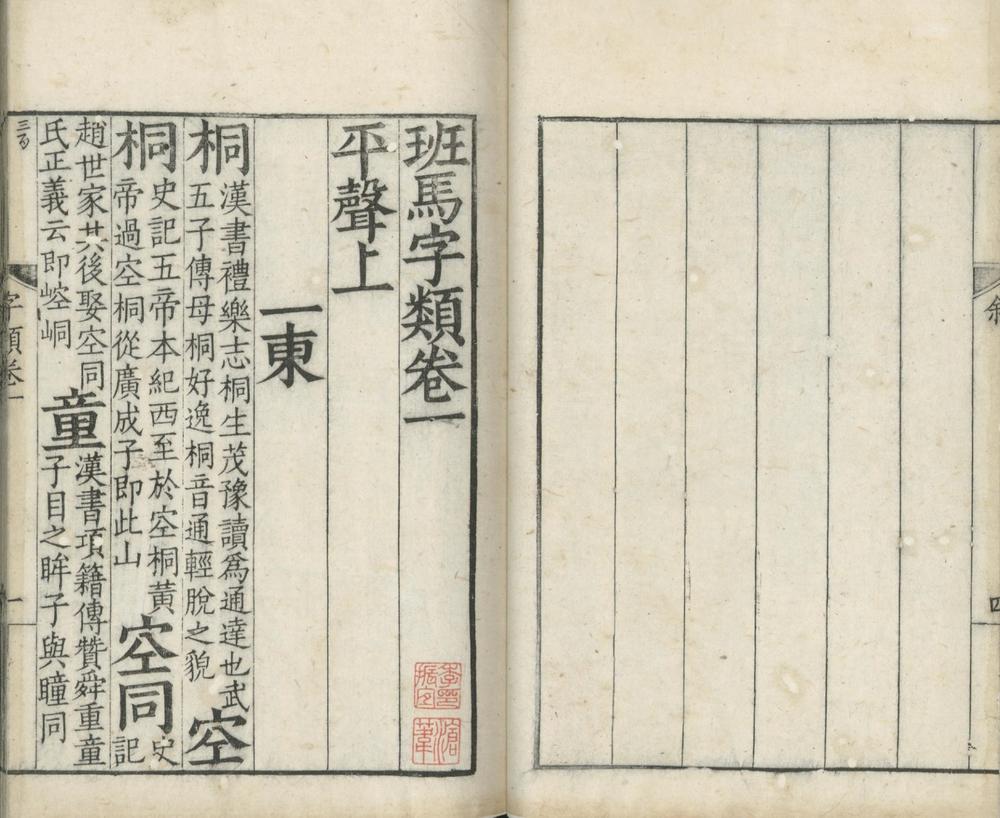 班馬字類卷一
季振宜印
滄葦
平聲上
一東
桐
漢書禮樂志桐生茂豫讀爲通達也武
五子傳母桐好逸桐音通輕脫之貌
空
桐
史記五帝本紀西至於空桐黃
帝過空桐從廣成子即此山
空同
史
記
趙世家其後娶空同
氏正義云即崆峒
童
漢書項籍傳贊舜重童
子目之眸子與瞳同
字類卷一
一